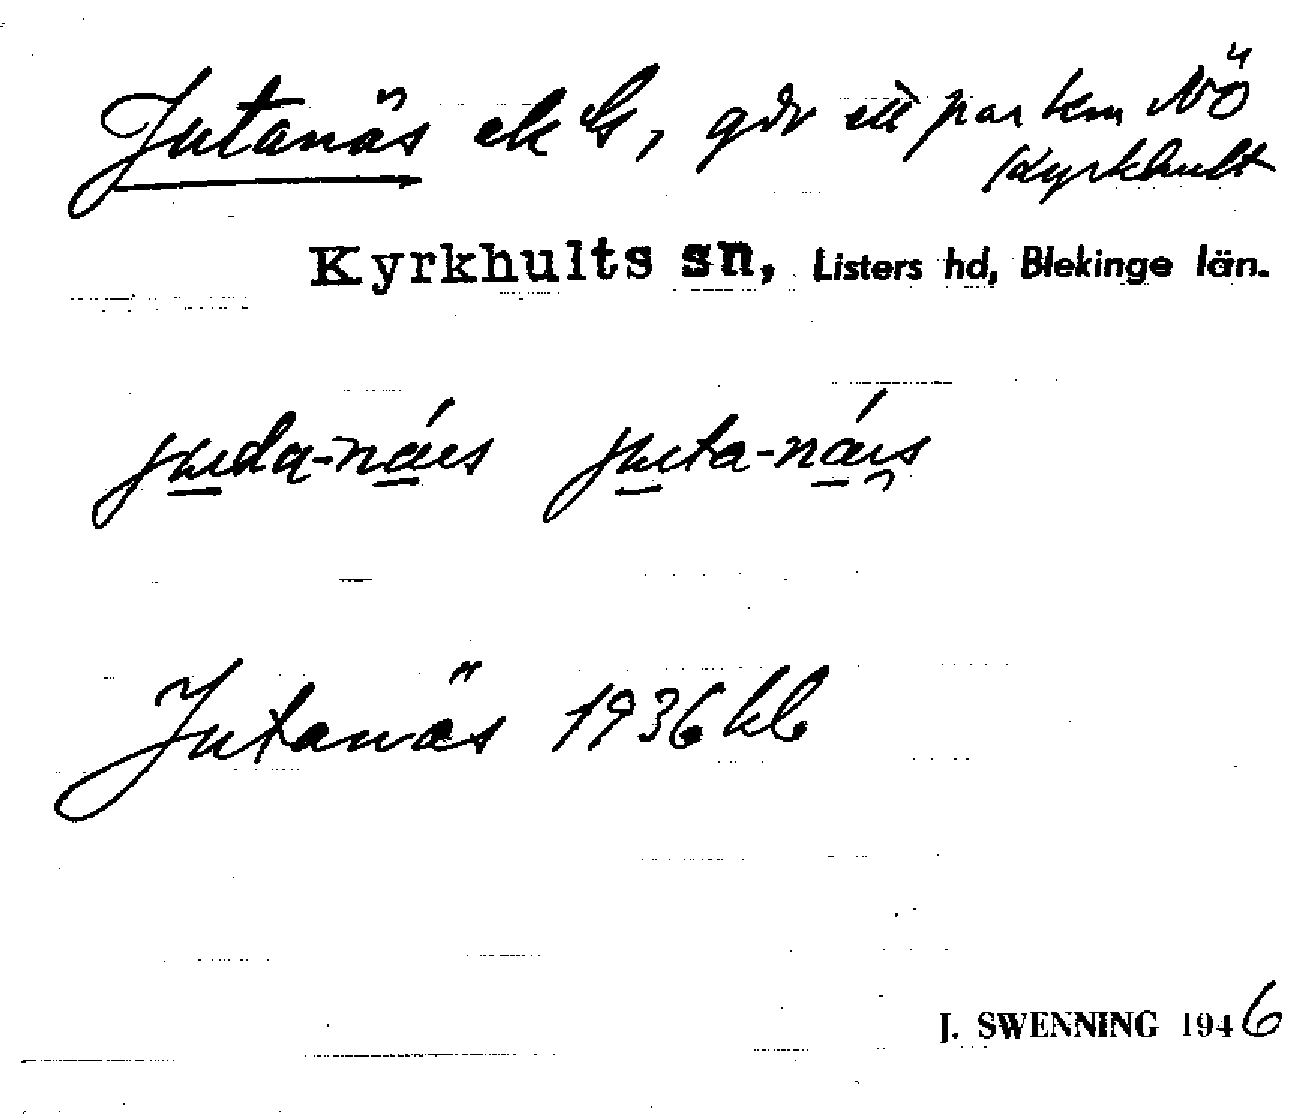 Jutanäs ek G, går ett par km NÖ
Kyrkhult
Kyrkhults sn, Listers hd, Blekinge län.
juda-náis juta-náis
Jutanäs 1936 kb
J. SWENNING 1946